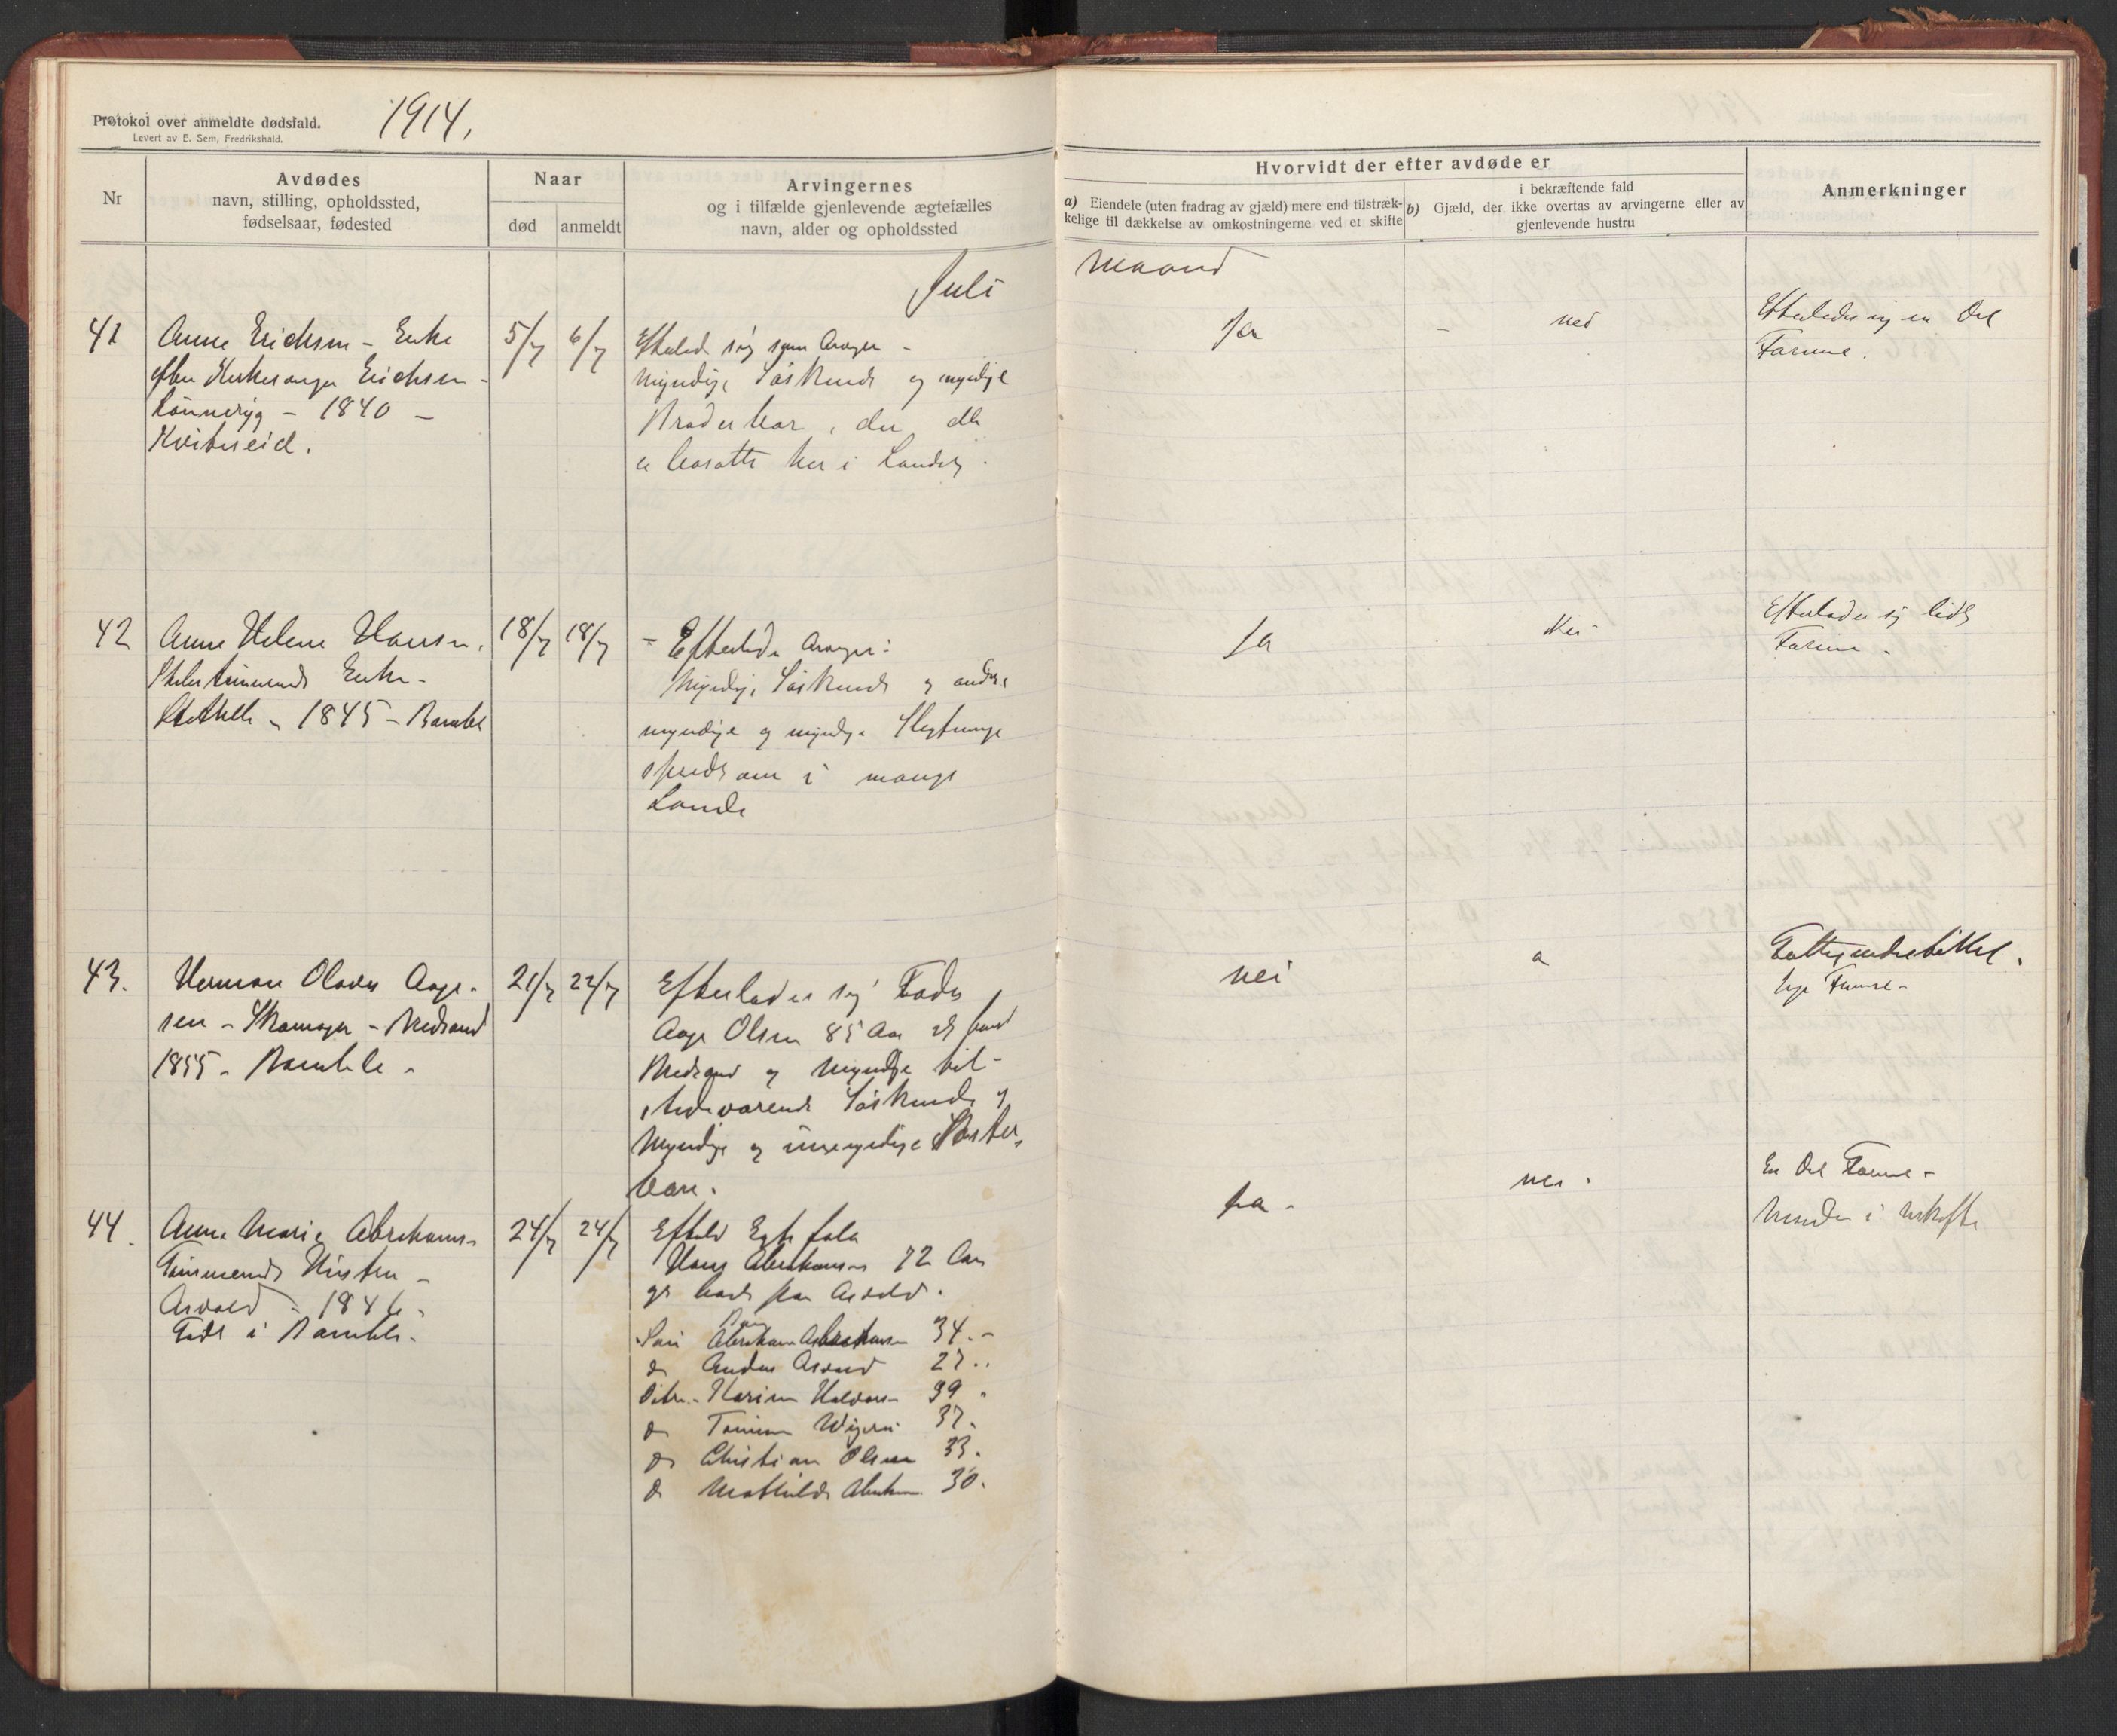 Protokol over anmeldte dødsfald.
Levert av E. Sem, Fredrikshald.
1914,
Nr
Avdødes
navn, stilling, opholdssted,
fødselsaar, fødested
Naar
død
anmeldt
Arvingernes
og i tilfælde gjenlevende ægtefælles
navn, alder og opholdssted
Hvorvidt der efter avdøde er
a) Eiendele (uten fradrag av gjæld) mere end tilstræk-
kelige til dækkelse av omkostningerne ved et skifte
i bekræftende fald
b) Gjæld, der ikke overtas av arvingerne eller av
gjenlevende hustru
Anmerkninger
Juli
Maaned
41
Anne Erichsen - Enke
efter Kirkesanger Erichsen -
- 1840 -
Kviteseid.
5/7
6/7
Efterlod sig som Arvinger -
myndige Søskende og myndige
Broderbør, der alle
er bosatte her i Landet.
Ja
-
nei
Efterlader sig en Del
Formue.
42
Anne Helene Hansen,
Enke -
Stathelle - 1845 - Bamble
18/7
18/7
- Efterlader Arvinger:
Myndige Søskende og andre
myndige og myndige Slegtninge
spredt om i mange
Lande
Ja
Nei -
Efterlader sig lidt
Formue -
43.
Herman Olaus Aage-
sen - Skomager -
1855 - Bamble -
21/7
22/7
Efterlader sig Fader
Aage Olsen 85 Aar
og myndige til-
stedeværende Søskende og
Myndige og umyndige Søster-
børn.
nei
Formue -
44.
Anne Marie Abrahams-
Tømmermands Hustru -
Asvald - 1846 -
Født i Bamble -
24/7
24/7
Efterlod Egtefelle
Hans Abrahamsen 72 Aar
Søn Abraham Abrahamsen 34. -
do Anders 27 ..
Datter - Karine Halvorsen 39 "
do 37.
do Christiane Olsen 33.
do Mathilde Abrahamsen 30.
Ja -
nei.
En Del Formue -
Manden i uskifte